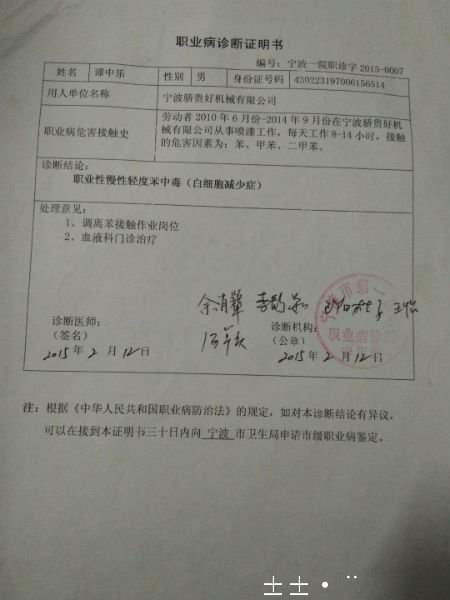 职业病诊断证明书
编号：宁波一院职诊字 2015-0007
姓名 谭中乐 性别 男 身份证号码 430223197006156514
用人单位名称 宁波骄贵好机械有限公司
职业病危害接触史
劳动者 2010 年 6 月份-2014 年 9 月份在宁波骄贵好机
械有限公司从事喷漆工作，每天工作 8-14 小时，接触
的危害因素为：苯、甲苯、二甲苯。
诊断结论：
职业性慢性轻度苯中毒（白细胞减少症）
处理意见：
1、调离苯接触作业岗位
2、血液科门诊治疗
诊断医师：
（签名）
2015年 2月 12日
诊断机构：
（公章）
2015年 2月 12日
宁波市第一
职业病诊断
注：根据《中华人民共和国职业病防治法》的规定，如对本诊断结论有异议，
可以在接到本证明书三十日内向 宁波 市卫生局申请市级职业病鉴定。